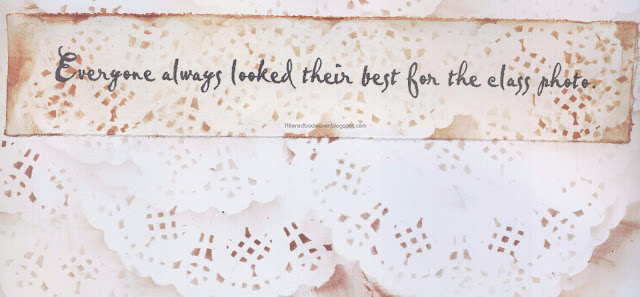 Everyone always looked their best for the class photo.
Alteredbooklover.blogspot.com